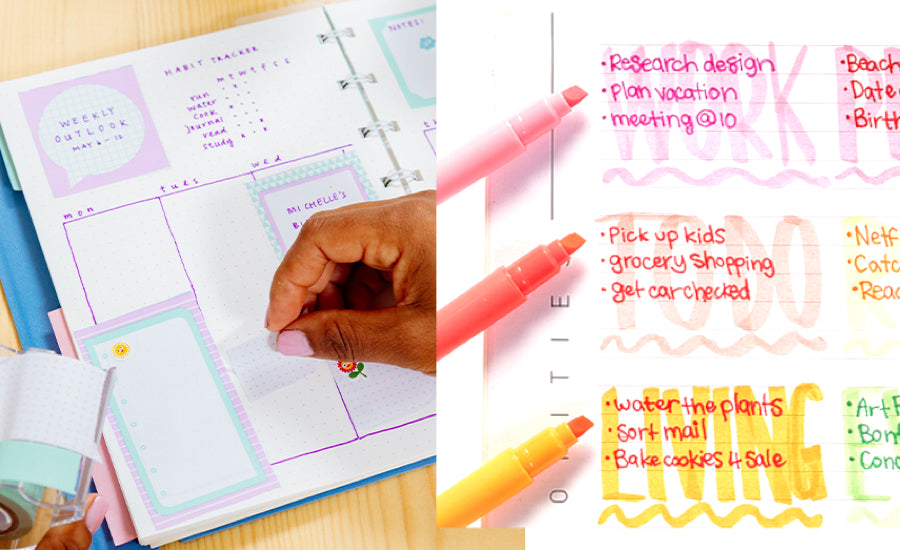 HABIT TRACKER
m t w t f s s
run
water
cook
Journal
read
study
WEEKLY
OUTLOOK
MAY 6-12
NOTES:
mon
tues
wed
MICHELLE'S
WORK
•Research design
•plan vacation
•meeting @ 10
•Beach
•Date
•Birth
TO DO
•Pick up kids
•grocery shopping
•get car checked
•Netf
•Catc
•Read
LIVING
•water the plants
•Sort mail
•Bake cookies 4 Sale
•Art
•Bon
•Conc